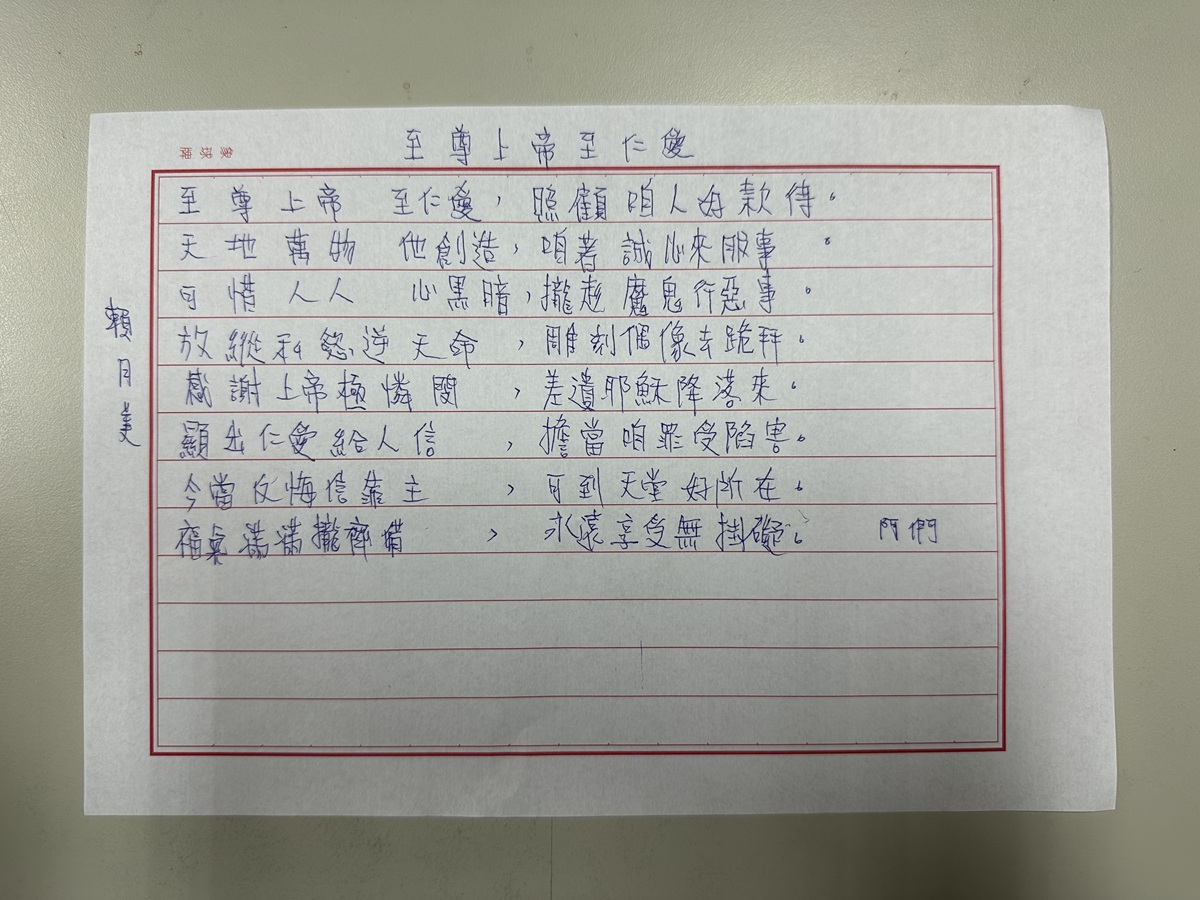 至尊上帝至仁愛
象球牌
至尊上帝 至仁愛，照顧咱人好款待。
天地萬物 他創造，咱著誠心來服事。
可惜人人 心黑暗，攏趁魔鬼行惡事。
放縱私慾逆天命，雕刻偶像去跪拜。
感謝上帝極憐閔，差遣耶穌降落來。
顯出仁愛給人信，擔當咱罪受陷害。
今當反悔信靠主，可到天堂好所在。
福氣滿滿攏齊備，永遠享受無掛礙。 阿們
賴月美